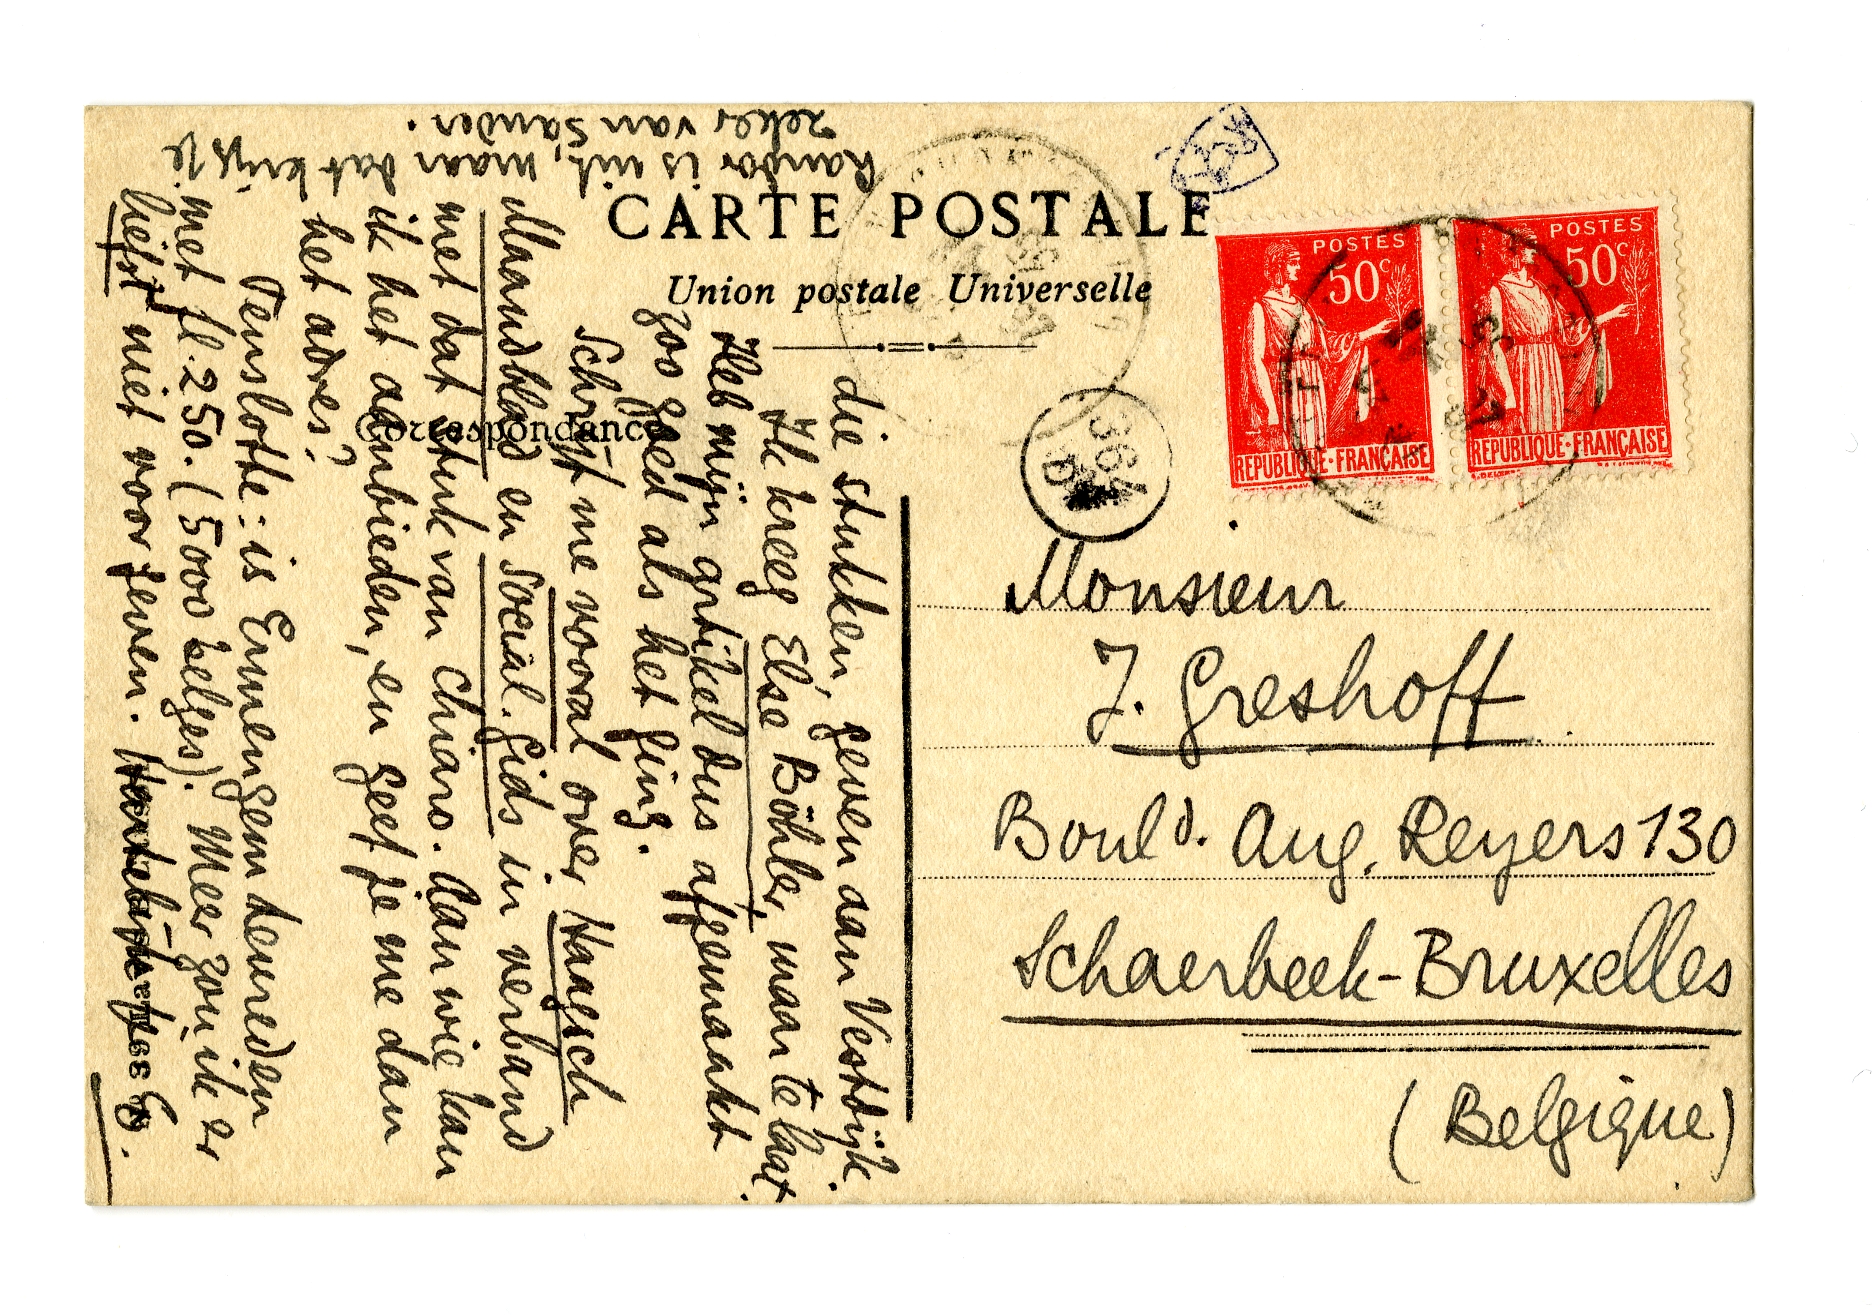 CARTE POSTALE
Union postale Universelle
Correspondance
POSTES
50c
REPUBLIQUE·FRANÇAISE
POSTES
50c
REPUBLIQUE·FRANÇAISE
364
Monsieur
J. Greshoff
Bould. Aug. Reyers 130
Schaerbeek-Bruxelles
(Belgique)
die stukken, geven aan Vestdijk.
Ik kreeg Else Böhler, maar te laat.
Heb mijn artikel dus afgemaakt
zoo goed als het ging.
Schrijf me vooral over Haagsch
Maandblad en Social. Gids in verband
met dat stuk van Chiaro. Aan wie kan
ik het aanbieden, en geef je me dan
het adres?
Tenslotte: is Ermengem tevreden
met fl. 250. (5000 belges). Meer zou ik er
liefst niet voor geven. Hartelijk je E.
Randor is uit, maar dat krijg je
zeker van Sander.